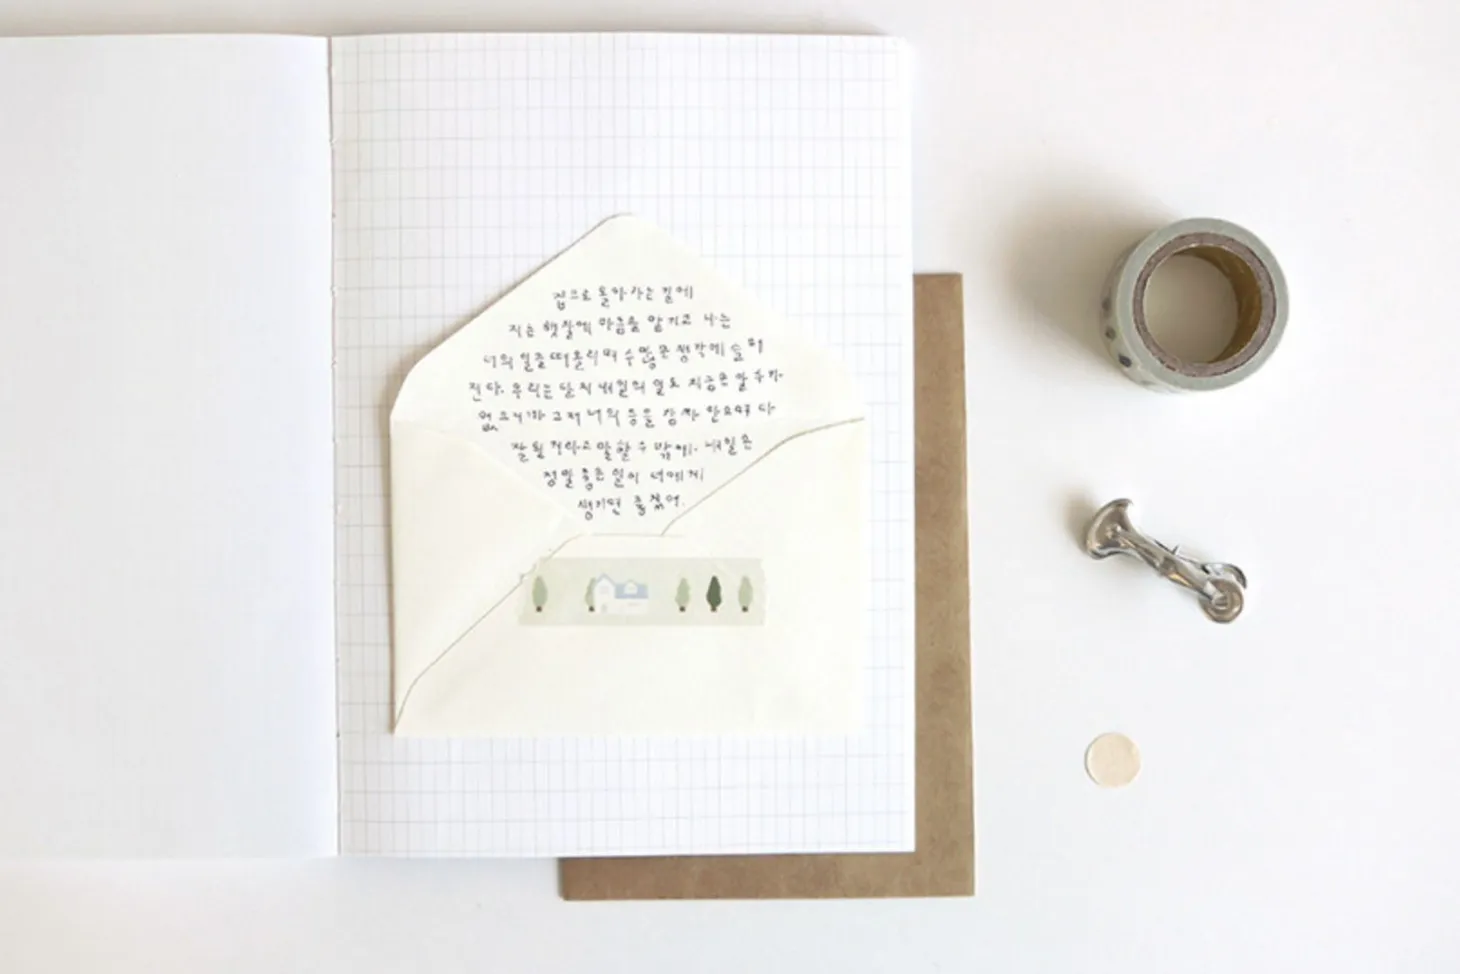 집으로 돌아가는 길에
지는 햇살에 마음을 맡기고 나는
너의 일을 떠올리며 수많은 생각에 슬퍼
진다. 우리는 단지 내일의 일도 지금은 알 수가
없으니까 그저 너의 등을 감싸 안으며 다
잘 될 거라고 말할 수 밖에. 내일은
정말 좋은 일이 너에게
생기면 좋겠어.